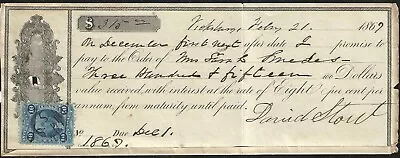 $ 315.00 Vicksburg Feby 21. 1869
On December first next after date I promise to
pay to the Order of Mrs Smedes
Three Hundred & fifteen 00 Dollars
value received, with interest at the rate of Eight per cent per
annum, from maturity until paid. David Stout
No. Due Dec 1.
1869.